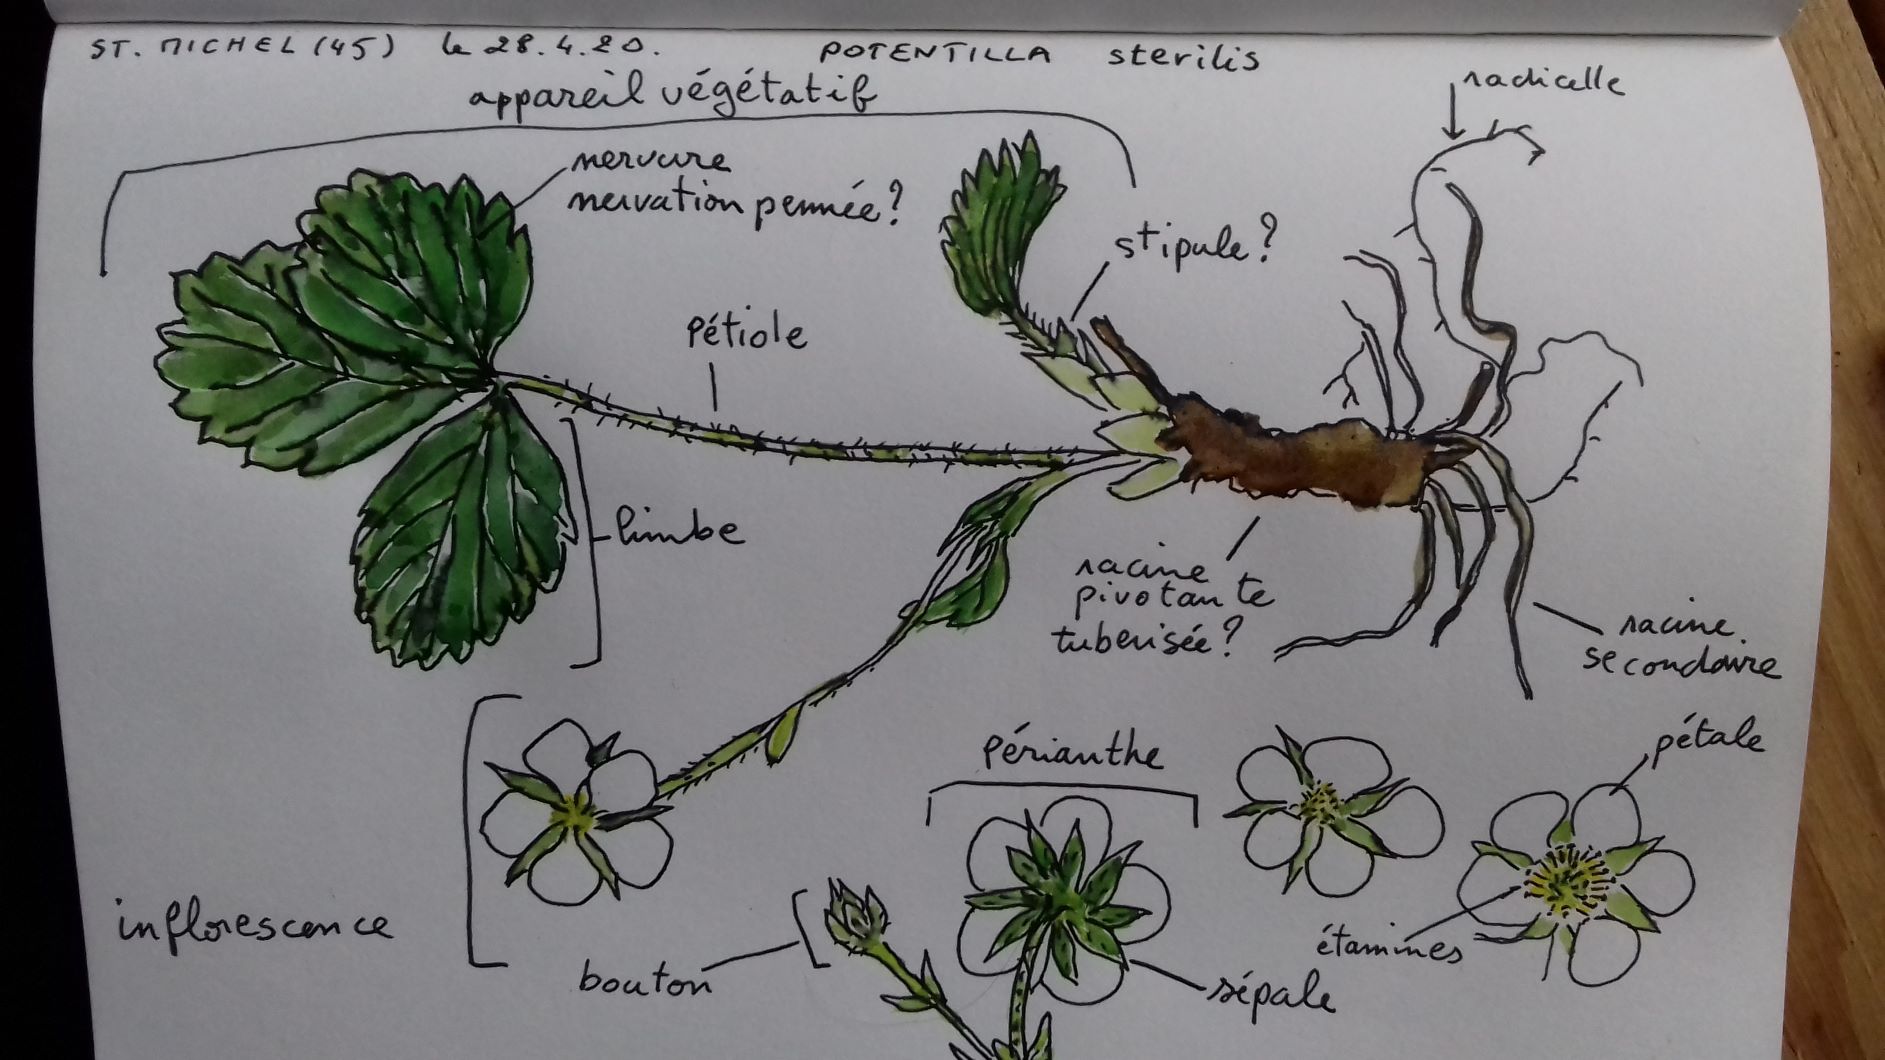 ST. MICHEL (45) le 28.4.20. POTENTILLA sterilis
appareil végétatif
radicelle
nervure
nervation pennée?
stipule?
pétiole
limbe
racine
pivotante
tuberisée?
racine.
secondaire
pétale
périanthe
inflorescence
étamines
bouton
sépale